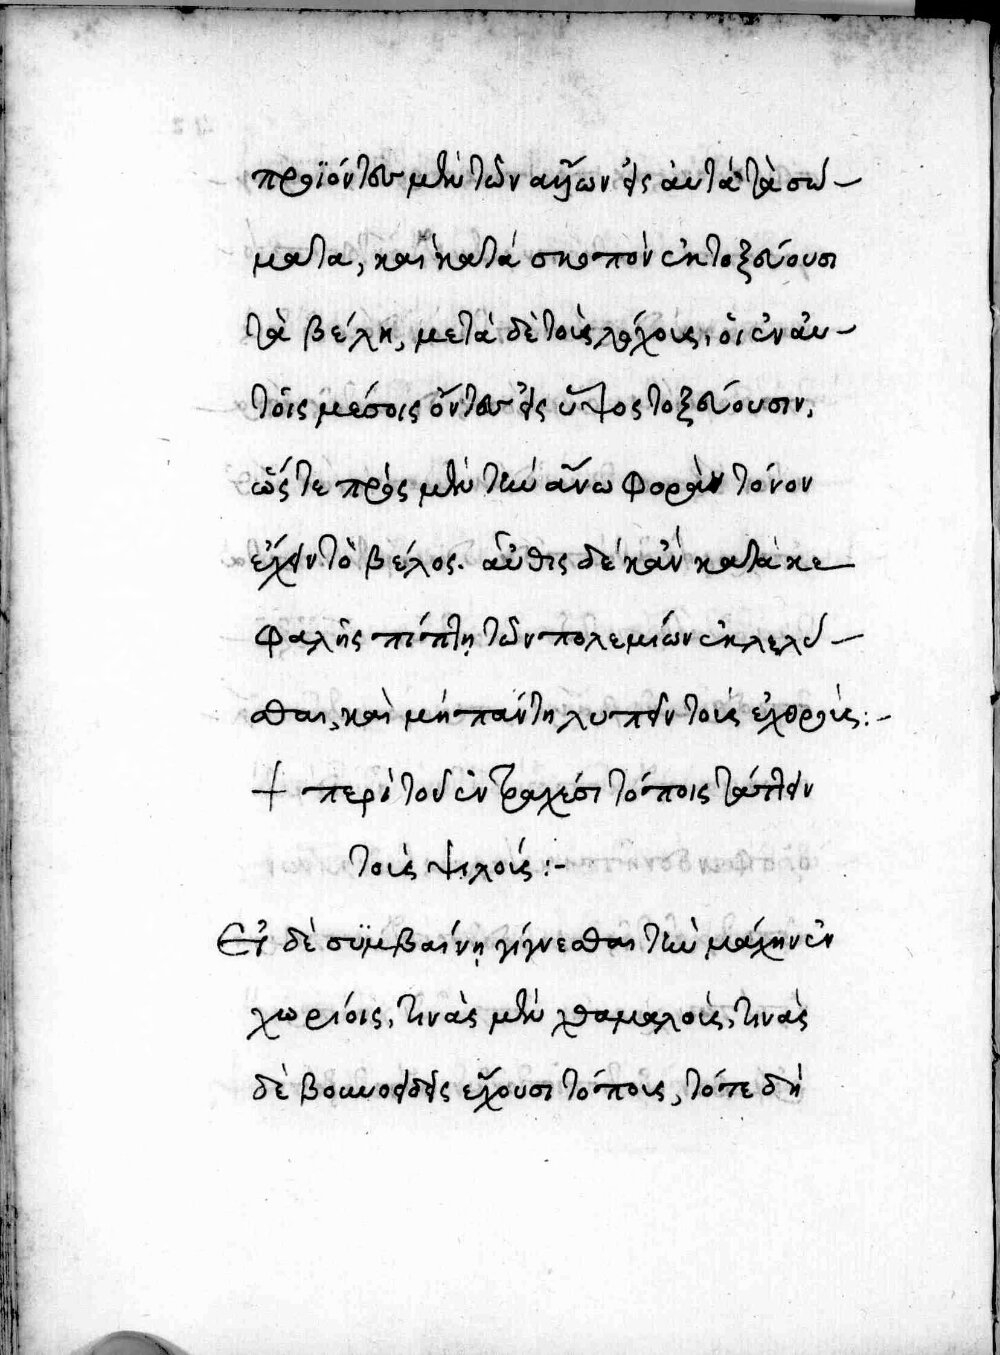 προϊόντων μὲν τῶν αὐτῶν εἰς ἀυτὰ τὰ σώ-
ματα, καὶ κατὰ σκοπὸν ἐκτοξεύουσι
τὰ βέλη, μετὰ δὲ τοῖς λόχοις, οἱ ἐν ἀυ-
τοῖς μέσοις ὄντων εἰς ὕψος τοξεύουσιν,
ὥς τε πρὸς μὲν τὴν ἄνω φορὰν τόνον
ἔχειν τὸ βέλος. αὖθις δὲ κἂν κατὰ κε
φαλῆς πίπτῃ τῶν πολεμίων ἐκλελύ-
σθαι, καὶ μὴ πάντη λυπεῖν τοῖς ἐχθροῖς:-
περὶ τοῦ ἐν τραχέσι τόποις τάττειν
τοῖς ψιλοῖς:-
Εἰ δὲ συμβαίνῃ γίγνεσθαι τὴν μάχην ἐν
χωρίοις, τινὰς μὲν χθαμαλοῖς, τινὰς
δὲ βουνοειδεῖς ἔχουσι τόποις, τότε δὴ